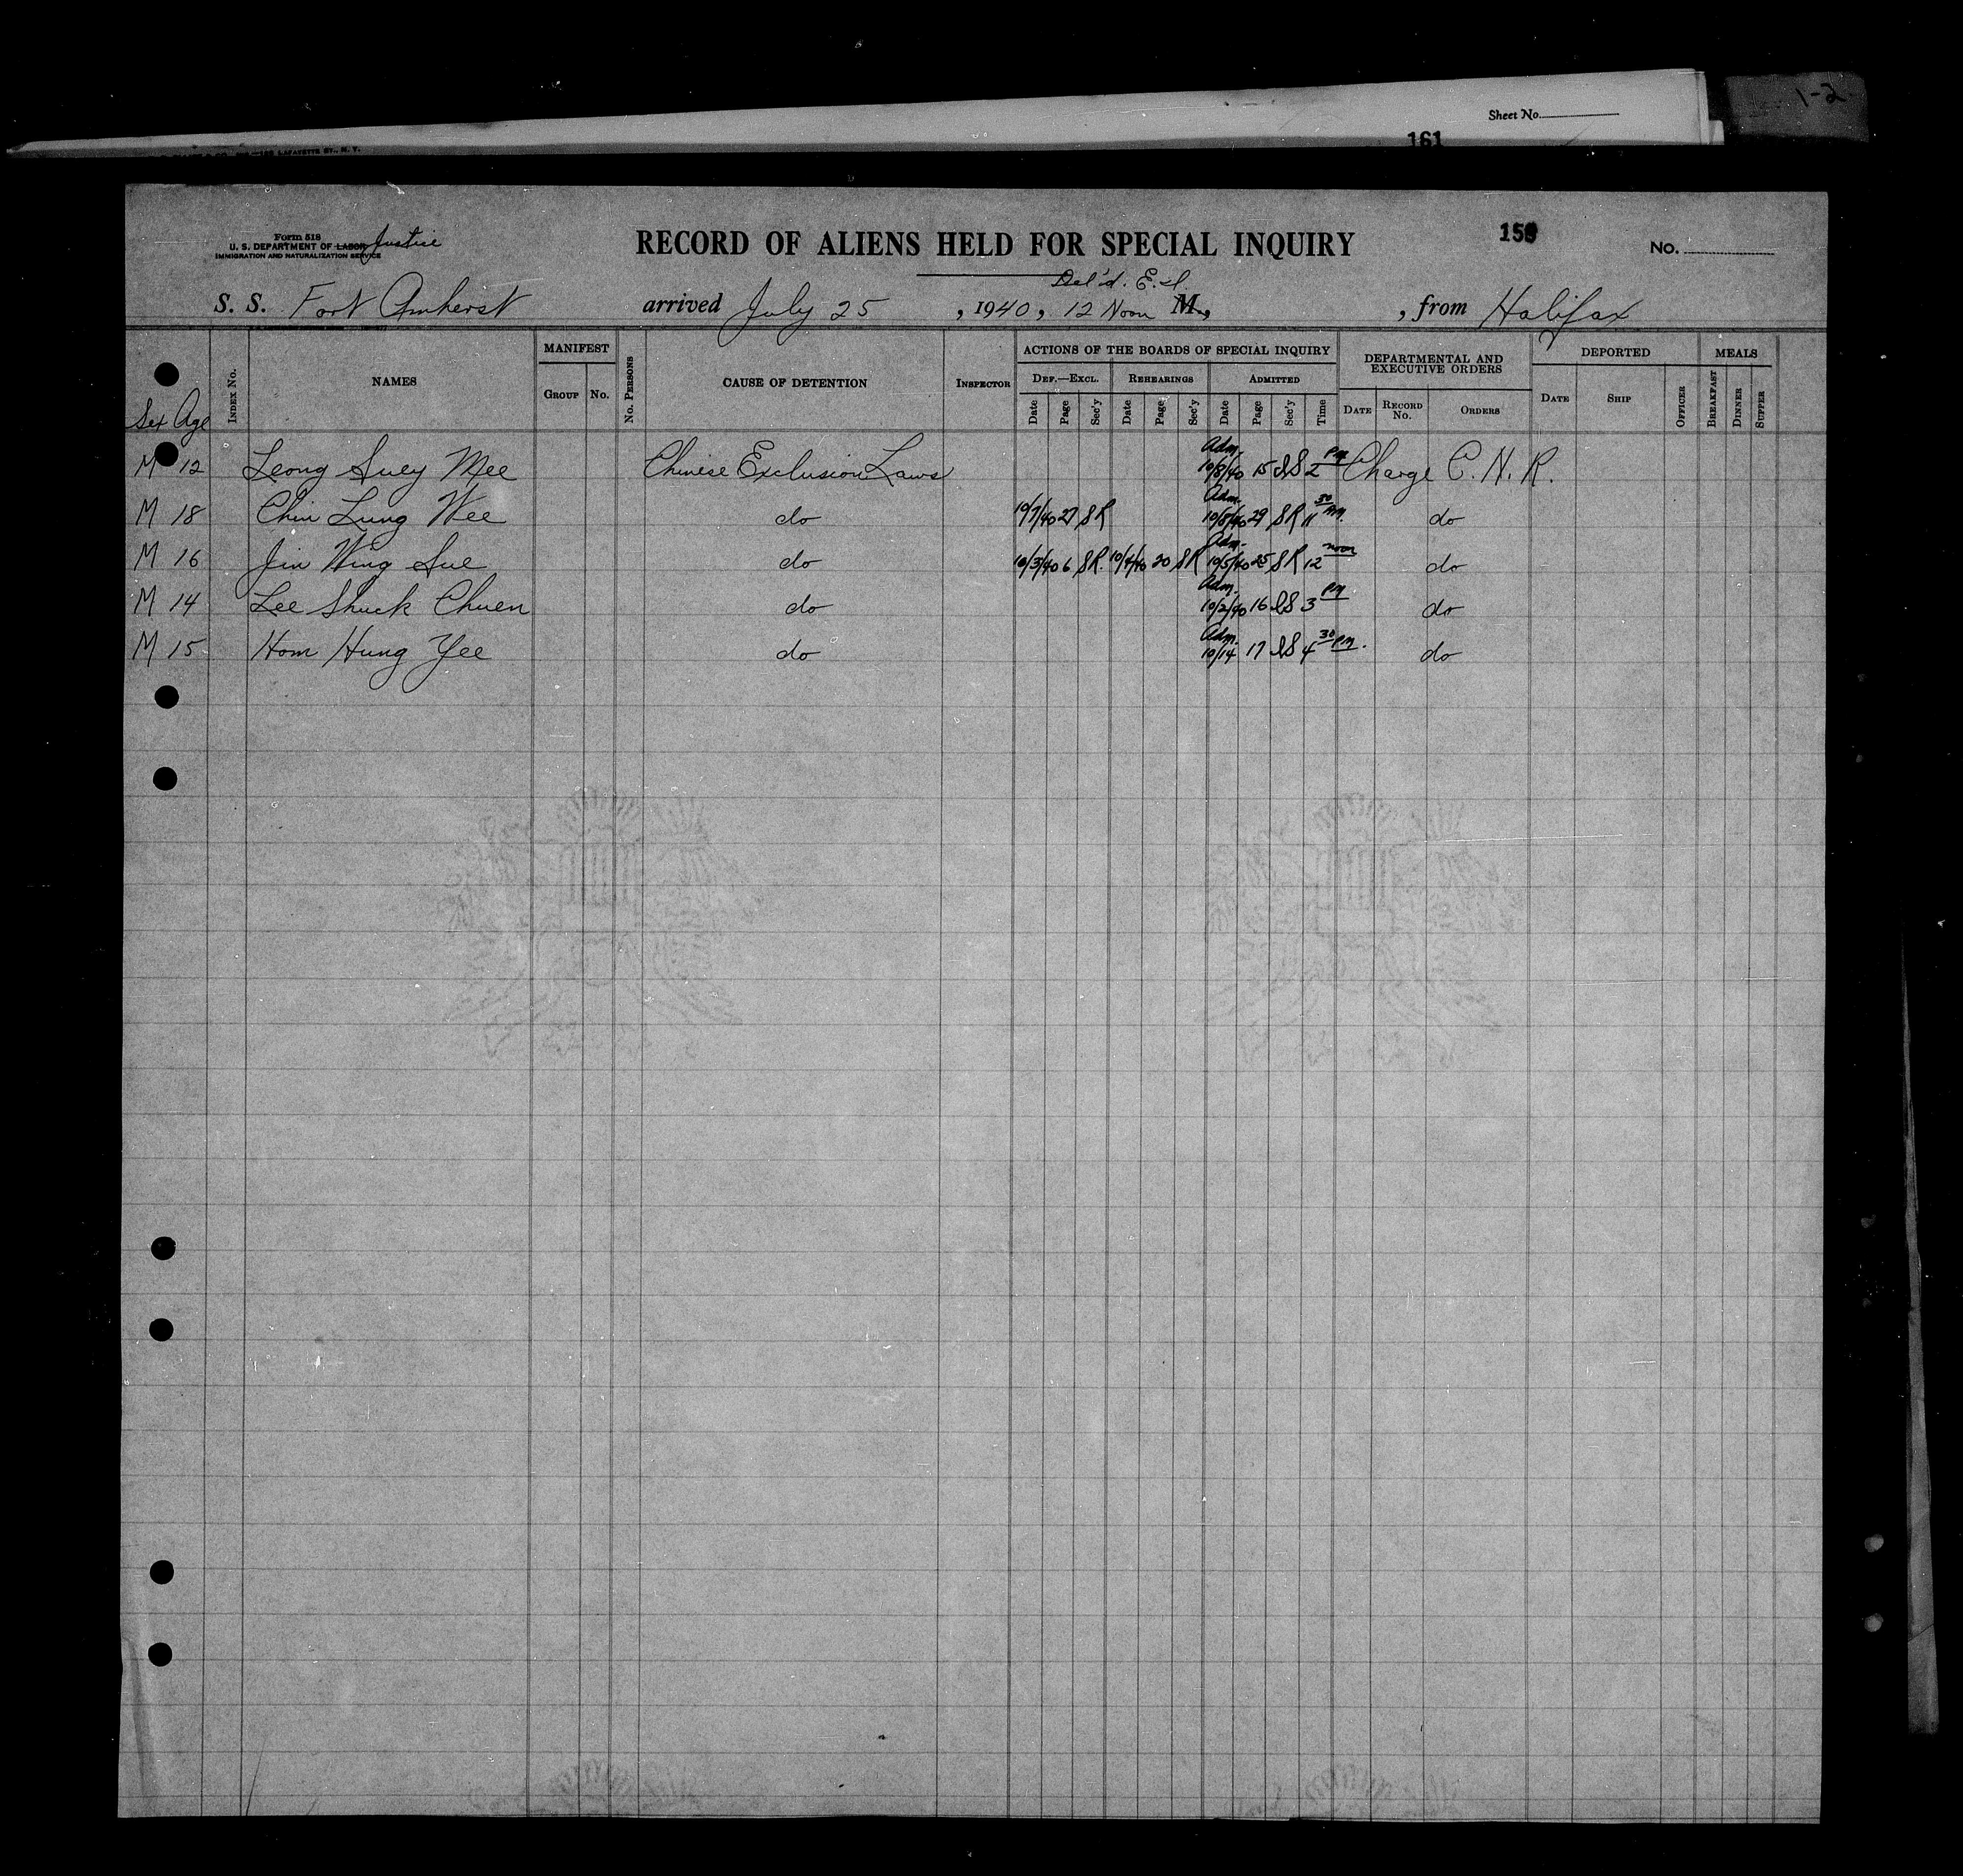 1-2
Sheet No.
161
LAFAYETTE ST., N. Y.
Form 518
U. S. DEPARTMENT OF LABOR Justice
IMMIGRATION AND NATURALIZATION SERVICE
RECORD OF ALIENS HELD FOR SPECIAL INQUIRY
No.
Del'd. E.I.
S. S. Fort Amherst arrived July 25, 1940, 12 Noon M., from Halifax
Sex Age INDEX No. NAMES MANIFEST GROUP No. No. PERSONS CAUSE OF DETENTION INSPECTOR ACTIONS OF THE BOARDS OF SPECIAL INQUIRY DEPARTMENTAL AND EXECUTIVE ORDERS DEPORTED MEALS
DEF.—EXCL. REHEARINGS ADMITTED
Date Page Sec'y Date Page Sec'y Date Page Sec'y Time DATE RECORD No. ORDERS DATE SHIP OFFICER BREAKFAST DINNER SUPPER
M 12 Leong Suey Mee Chinese Exclusion Laws Adm. 10/8/40 15 IS 2 PM Charge C. N. R.
M 18 Chin Lung Wee do 10/7/40 27 SR Adm. 10/8/40 29 SR 11 30 do
M 16 Jin Wing Sue do 10/3/40 6 SR. 10/4/40 20 SR Adm. 10/5/40 25 SR 12 noon do
M 14 Lee Shuck Chuen do Adm. 10/2/40 16 IS 3 PM do
M 15 Hom Hung Yee do Adm. 10/14 17 IS 4 30 PM. do